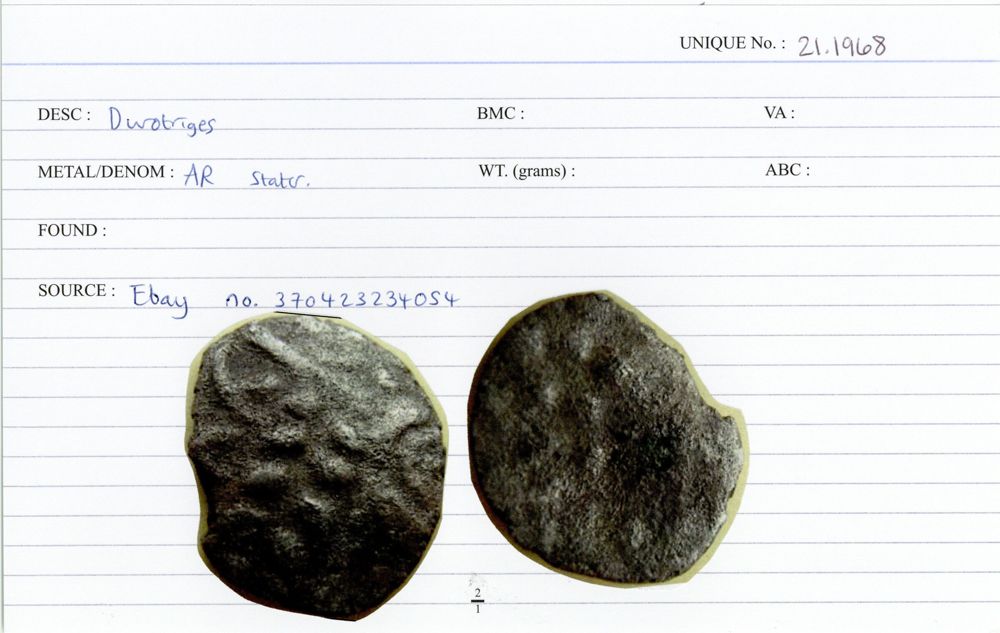 UNIQUE No. : 21.1968
DESC : Durotriges BMC : VA :
METAL/DENOM : AR Stater. WT. (grams) : ABC :
FOUND :
SOURCE : Ebay no. 370423234054
2
1